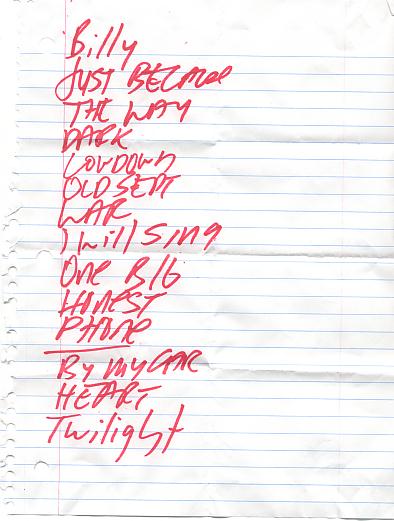 Billy
JUST BECAUSE
THE WAY
DARK
LOWDOWN
OLD SEPT
WAR
I will SING
ONE BIG
HONEST
PHONE
By my CAR
HEART
Twilight